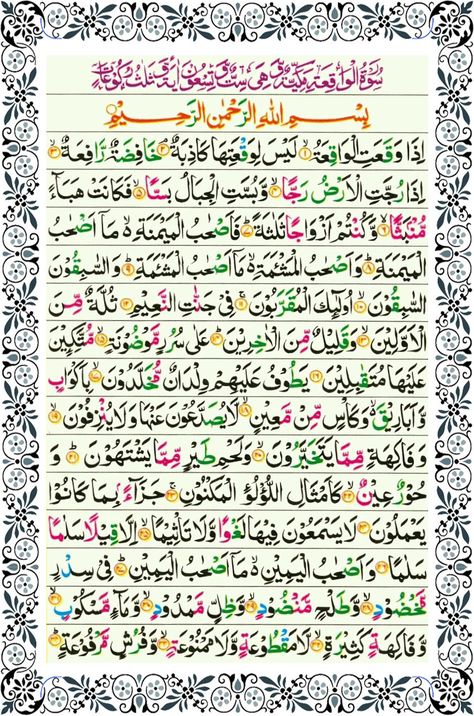 سُوْرَةُ الْوَاقِعَةِ مَكِّيَّةٌ وَّهِىَ سِتٌّ وَّتِسْعُوْنَ اٰيَةً وَّثَلٰثُ رُكُوْعَاتٍ
بِسْمِ اللّٰهِ الرَّحْمٰنِ الرَّحِيْمِ
اِذَا وَقَعَتِ الْوَاقِعَةُ ۙ‏﴿۱﴾ لَيْسَ لِوَقْعَتِهَا كَاذِبَةٌ ۘ‏﴿۲﴾ خَافِضَةٌ رَّافِعَةٌ ۙ‏﴿۳﴾
اِذَا رُجَّتِ الْاَرْضُ رَجًّا ۙ‏﴿۴﴾ وَّبُسَّتِ الْجِبَالُ بَسًّا ۙ‏﴿۵﴾ فَكَانَتْ هَبَآءً
مُّنْۢبَثًّا ۙ‏﴿۶﴾ وَّكُنْتُمْ اَزْوَاجًا ثَلٰثَةً ؕ‏﴿۷﴾ فَاَصْحٰبُ الْمَيْمَنَةِ ۙ مَاۤ اَصْحٰبُ
الْمَيْمَنَةِ ؕ‏﴿۸﴾ وَاَصْحٰبُ الْمَشْـَٔمَةِ ۙ مَاۤ اَصْحٰبُ الْمَشْـَٔمَةِ ؕ‏﴿۹﴾ وَالسّٰبِقُوْنَ
السّٰبِقُوْنَ ۚۙ‏﴿۱۰﴾ اُولٰٓئِكَ الْمُقَرَّبُوْنَ ۚ‏﴿۱۱﴾ فِىْ جَنّٰتِ النَّعِيْمِ ‏﴿۱۲﴾ ثُلَّةٌ مِّنَ
الْاَوَّلِيْنَ ۙ‏﴿۱۳﴾ وَقَلِيْلٌ مِّنَ الْاٰخِرِيْنَ ؕ‏﴿۱۴﴾ عَلٰى سُرُرٍ مَّوْضُوْنَةٍ ۙ‏﴿۱۵﴾ مُّتَّكِـِٕيْنَ
عَلَيْهَا مُتَقٰبِلِيْنَ ‏﴿۱۶﴾ يَطُوْفُ عَلَيْهِمْ وِلْدَانٌ مُّخَلَّدُوْنَ ۙ‏﴿۱۷﴾ بِاَكْوَابٍ
وَّاَبَارِيْقَ ۙ وَكَاْسٍ مِّنْ مَّعِيْنٍ ۙ‏﴿۱۸﴾ لَّا يُصَدَّعُوْنَ عَنْهَا وَلَا يُنْزِفُوْنَ ۙ‏﴿۱۹﴾
وَفَاكِهَةٍ مِّمَّا يَتَخَيَّرُوْنَ ۙ‏﴿۲۰﴾ وَلَحْمِ طَيْرٍ مِّمَّا يَشْتَهُوْنَ ؕ‏﴿۲۱﴾ وَ
حُوْرٌ عِيْنٌ ۙ‏﴿۲۲﴾ كَاَمْثَالِ اللُّؤْلُوٴِ الْمَكْنُوْنِ ۚ‏﴿۲۳﴾ جَزَآءًۢ بِمَا كَانُوْا
يَعْمَلُوْنَ ‏﴿۲۴﴾ لَا يَسْمَعُوْنَ فِيْهَا لَغْوًا وَّلَا تَاْثِيْمًا ۙ‏﴿۲۵﴾ اِلَّا قِيْلًا سَلٰمًا
سَلٰمًا ‏﴿۲۶﴾ وَاَصْحٰبُ الْيَمِيْنِ ۙ مَاۤ اَصْحٰبُ الْيَمِيْنِ ؕ‏﴿۲۷﴾ فِىْ سِدْرٍ
مَّخْضُوْدٍ ۙ‏﴿۲۸﴾ وَّطَلْحٍ مَّنْضُوْدٍ ۙ‏﴿۲۹﴾ وَّظِلٍّ مَّمْدُوْدٍ ۙ‏﴿۳۰﴾ وَّمَآءٍ مَّسْكُوْبٍ ۙ‏﴿۳۱﴾
وَّفَاكِهَةٍ كَثِيْرَةٍ ۙ‏﴿۳۲﴾ لَّا مَقْطُوْعَةٍ وَّلَا مَمْنُوْعَةٍ ۙ‏﴿۳۳﴾ وَّفُرُشٍ مَّرْفُوْعَةٍ ؕ‏﴿۳۴﴾